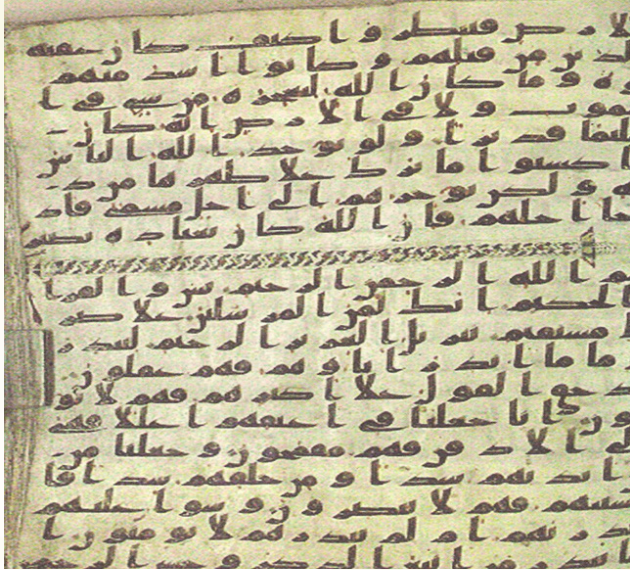 لارض فينظروا كيف كان عقبه
الذين من قبلهم وكانوا اشد منهم
قوه وما كان الله ليعجزه من شي في ا
لسموت ولا في الارض انه كان
عليما قديرا ولو يواخذ الله الناس
بما كسبوا ما ترك على ظهرها من د
ابه ولكن يوخرهم الى اجل مسمى فاذ
ا جا اجلهم فان الله كان بعباده بصير
بسم الله الرحمن الرحيم يس والقرا
ن الحكيم انك لمن المرسلين على صر
ط مستقيم تنزيل العزيز الرحيم لتنذر
قوما ما انذر اباوهم فهم غفلون
لقد حق القول على اكثرهم فهم لا يو
منون انا جعلنا في اعنقهم اغللا فهي
الى الاذقن فهم مقمحون وجعلنا من
بين ايديهم سدا ومن خلفهم سدا فا
غشينهم فهم لا يبصرون وسوا عليهم
اانذرتهم ام لم تنذرهم لا يومنون ا
نما تنذر من اتبع الذكر وخشي الرحمن